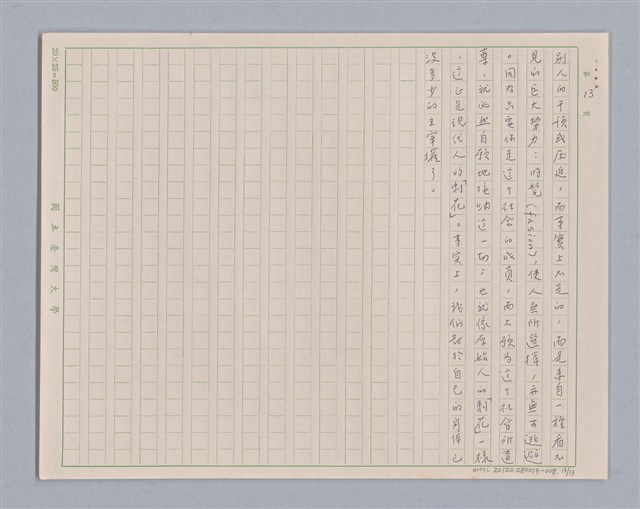 第 13 頁
別人的干預或压迫，而事實上不是的，而是来自一種看不
見的巨大勢力：時髦(fasion)，使人無所選擇，亦無可逃避
。因為只要你是這个社会的成員，而不願為這个社会所遺
棄，就必無自願地接納這一切；也就像原始人的「刺花」一樣
，這正是現代人的「刺花」。事实上，我们對於自己的身体已
没多少的主宰權了。
20×25=500
國立臺灣大學
20120280013-008. 13/13